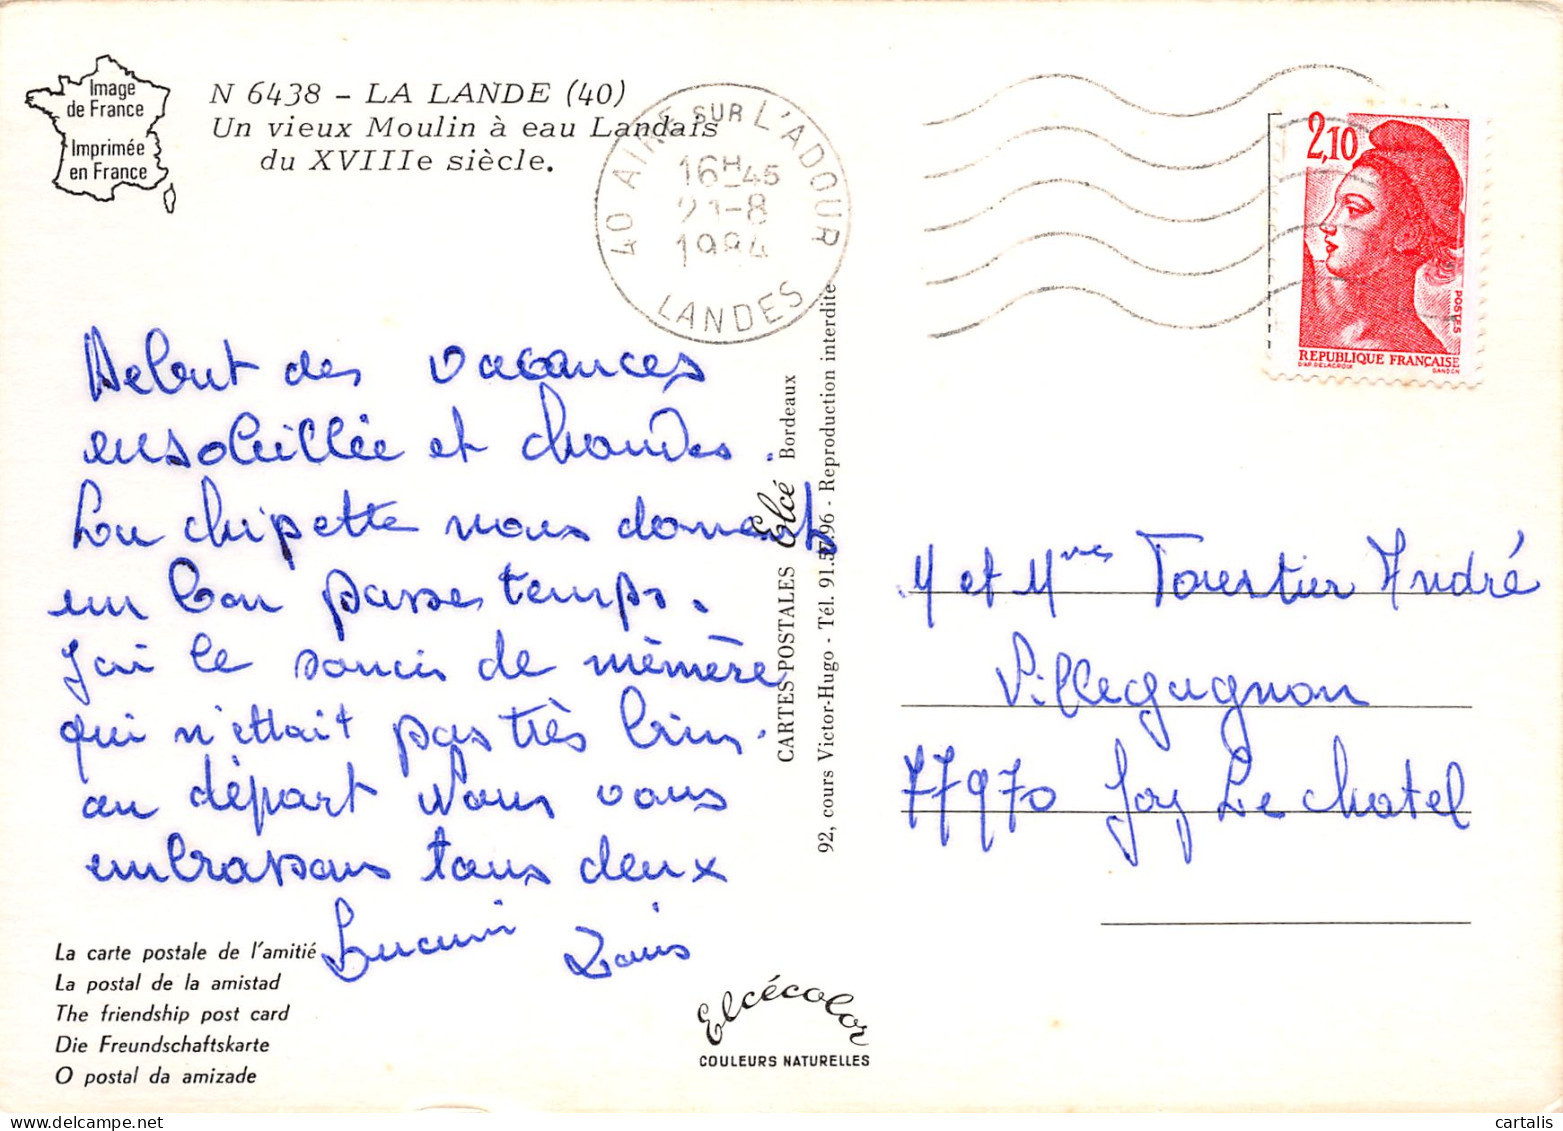 Image
de France
Imprimée
en France
N 6438 - LA LANDE (40)
Un vieux Moulin à eau Landais
du XVIIIe siècle.
40 AIRE SUR L'ADOUR
16H45
21-8
1984
LANDES
2,10
POSTES
REPUBLIQUE FRANÇAISE
D'AP. DELACROIX GANDON
Debut des vacances
ensoleillée et chaudes.
Lou chipette nous donnent
un bon passe temps.
J'ai le soucis de mèmère
qui n'ettait pas très bien.
au départ Nous vous
embrassons tous deux
Louis
M et Mme André
Villegagnon
77970 Joy Le chatel
CARTES POSTALES Elcé Bordeaux
92, cours Victor-Hugo - Tél. 91.57.96 - Reproduction interdite
La carte postale de l'amitié
La postal de la amistad
The friendship post card
Die Freundschaftskarte
O postal da amizade
Elcécolor
COULEURS NATURELLES
cartalis
www.delcampe.net